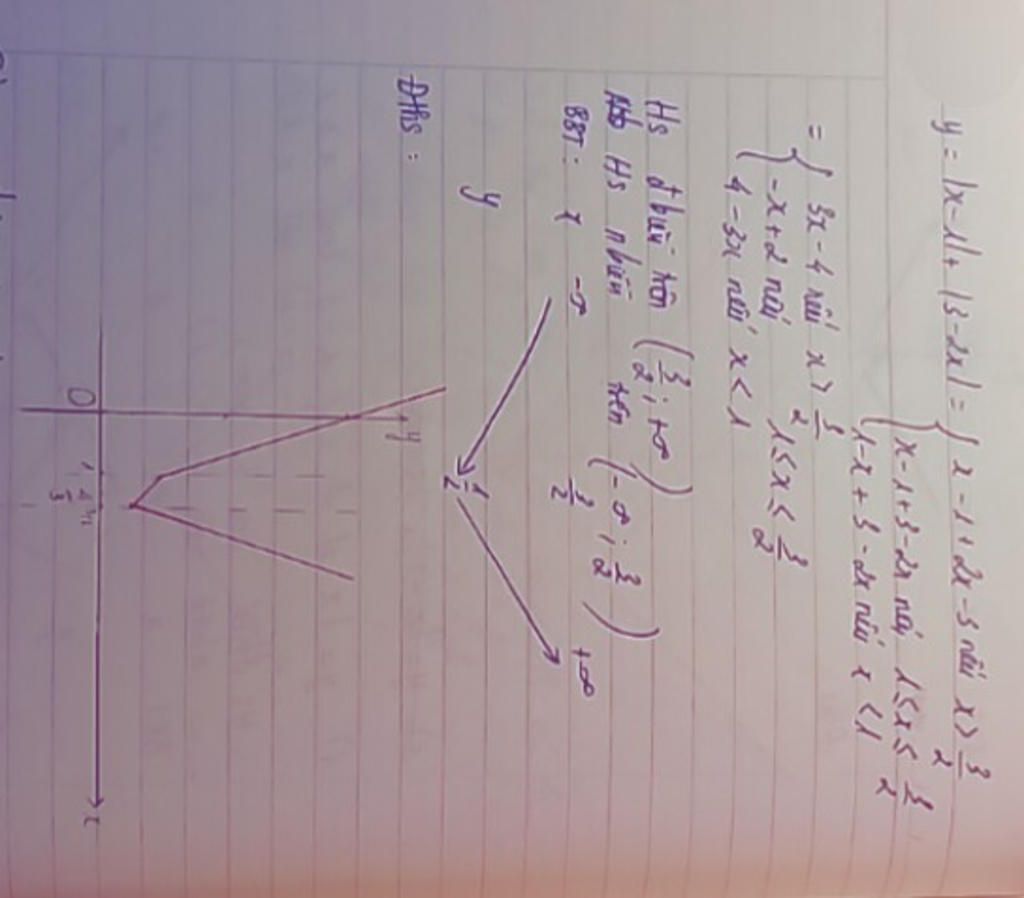 y = |x-1| + |3-2x| = { x-1+2x-3 nếu x > 3/2
x-1+3-2x nếu 1 ≤ x ≤ 3/2
1-x+3-2x nếu x < 1
= { 3x-4 nếu x > 3/2
-x+2 nếu 1 ≤ x ≤ 3/2
4-3x nếu x < 1
Hs đbiến trên (3/2; +∞)
Hs nbiến trên (-∞; 3/2)
BBT: x -∞ 3/2 +∞
y 1/2
ĐTHS:
y
O 1 x